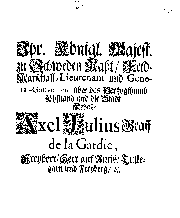 Ihr. Königl. Majest.
zu Schweden Raht/ Feld-
Marschall-Lieutenant und Gene-
über das Hertzogthumb
Ehstland und die Stadt
Axel Julius Graff
de la Gardie,
Freyherr/Herr auff
und Freyberg/ &c.